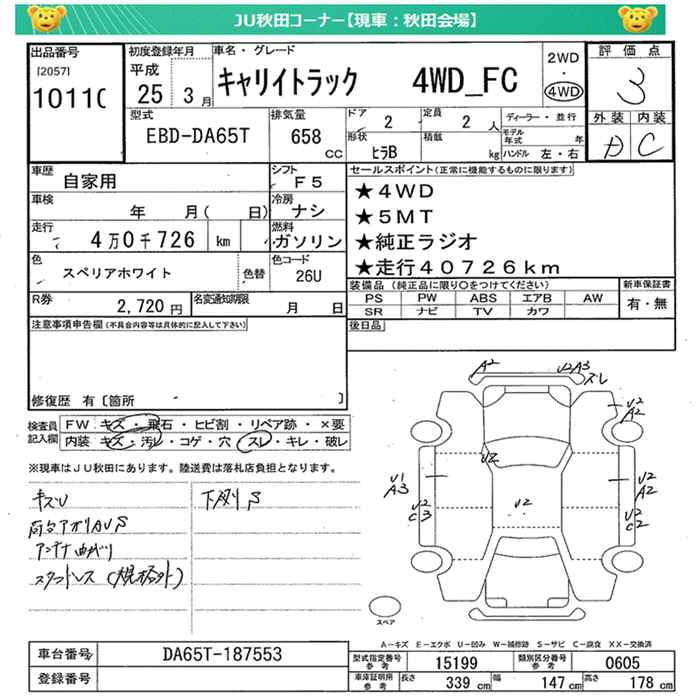 JU秋田コーナー【現車：秋田会場】
出品番号
[2057]
1011(
初度登録年月
平成
25 3 月
車名・グレード
キャリイトラック 4WD_FC
2WD
・
4WD
評価点
3
外装 内装
C
型式
EBD-DA65T
排気量
658
CC
ドア
2
定員
2 人
形状
ヒラB
積載
kg
ディーラー・並行
モデル年式 年
ハンドル 左・右
車歴
自家用
シフト
F5
車検
年 月( 日)
冷房
ナシ
走行
4万0千726 km
燃料
ガソリン
色
スペリアホワイト
色替
色コード
26U
R券
2,720 円
名変通知期限
月 日
セールスポイント(正常に機能するものに限ります)
★4WD
★5MT
★純正ラジオ
★走行40726km
装備品 (純正品に限り○をつけてください)
PS PW ABS エアB AW
SR ナビ TV カワ
新車保証書
有・無
後日品
注意事項申告欄(不具合内容等は具体的に記入して下さい)
修復歴 有〔箇所 〕
検査員記入欄
FW キズ・飛石・ヒビ割・リペア跡・×要
内装 キズ・汚レ・コゲ・穴・スレ・キレ・破レ
※現車はJU秋田にあります。陸送費は落札店負担となります。
キズU
下廻りS
アンテナ曲がり
A2
U2A3
スレ
U2
A2
U2
U1
A3
U2
A2
U2
C3
U2
U2
C2
スペア
A-キズ E-エクボ U-凹み W-補修跡 S-サビ C-腐食 XX-交換済
車台番号
DA65T-187553
登録番号
型式指定番号
参考
15199
類別区分番号
参考
0605
車庫証明用
参考
長さ
339 cm
幅
147 cm
高さ
178 cm